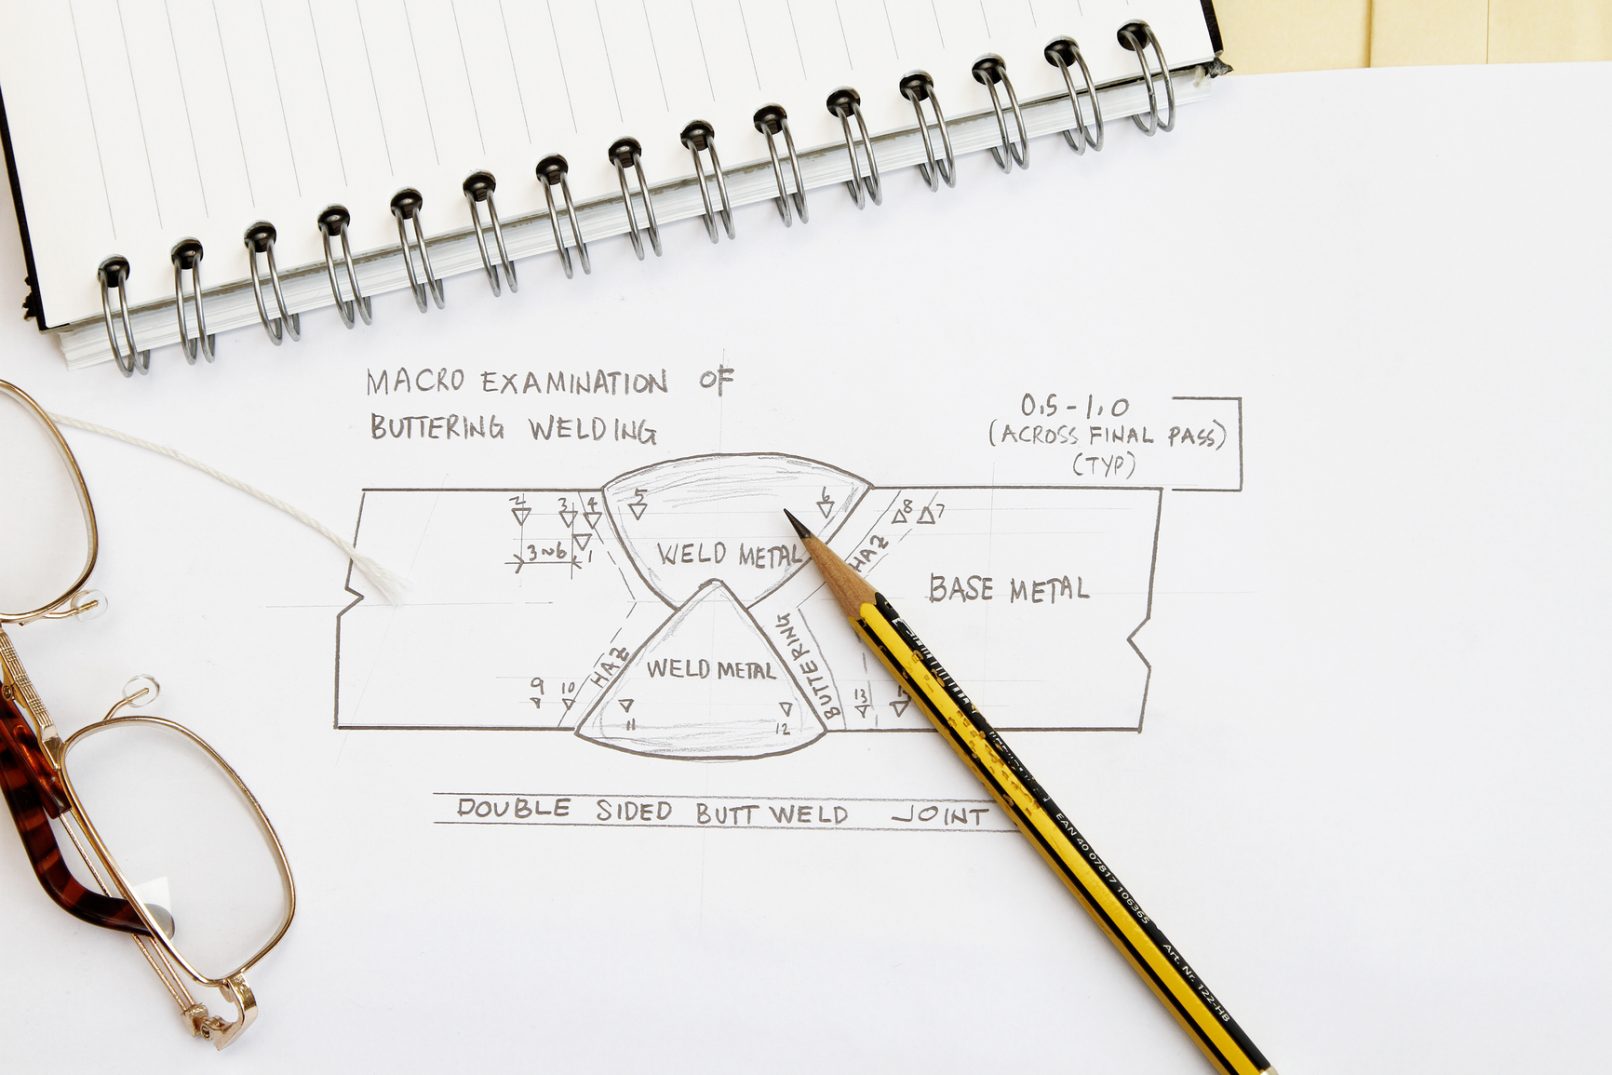 MACRO EXAMINATION OF
BUTTERING WELDING
0.5-1.0
(ACROSS FINAL PASS)
(TYP)
2 3 4 5 6 8 7
3~6 1
WELD METAL
HAZ
BASE METAL
WELD METAL
HAZ
BUTTERING
9 10 11 12 13
DOUBLE SIDED BUTT WELD JOINT
EAN 40 07817 106365
Art. Nr. 122-HB